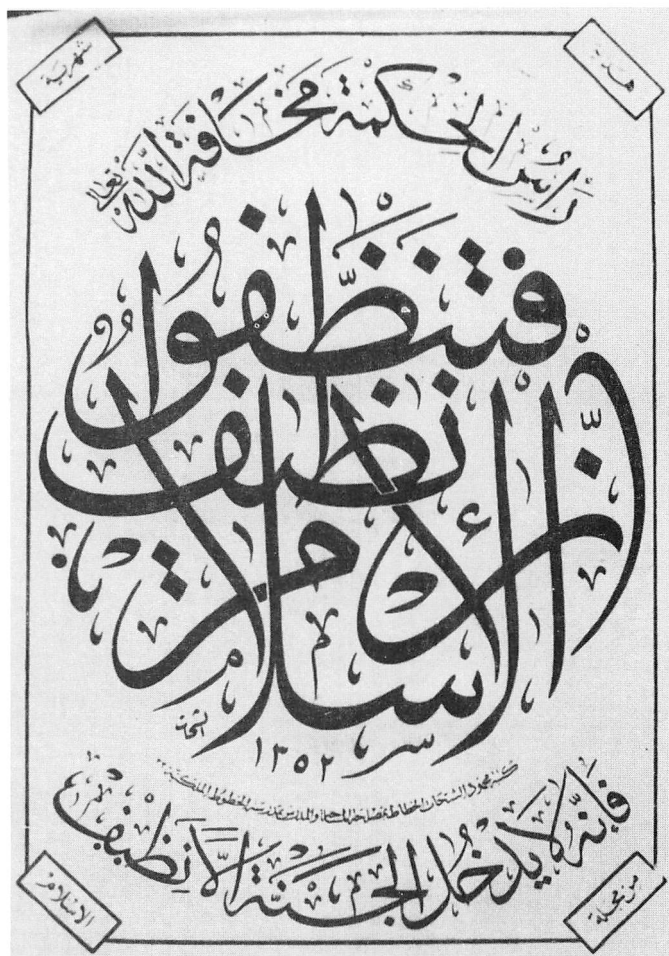 هدية شهرية
رَأسُ الحِكمَة مَخَافَة اللَّه تعالى
إنّ الإسلام نظيف فتنظّفوا
الشحات
سنة ١٣٥٢
كتبه محمود الشحات الخطاط بمصلحة المساحة والمدرس بمدرسة الخطوط الملكية
فَإِنَّه لا يدخُل الجَنَّة الَّا نظيف
من مجلة الاسلام